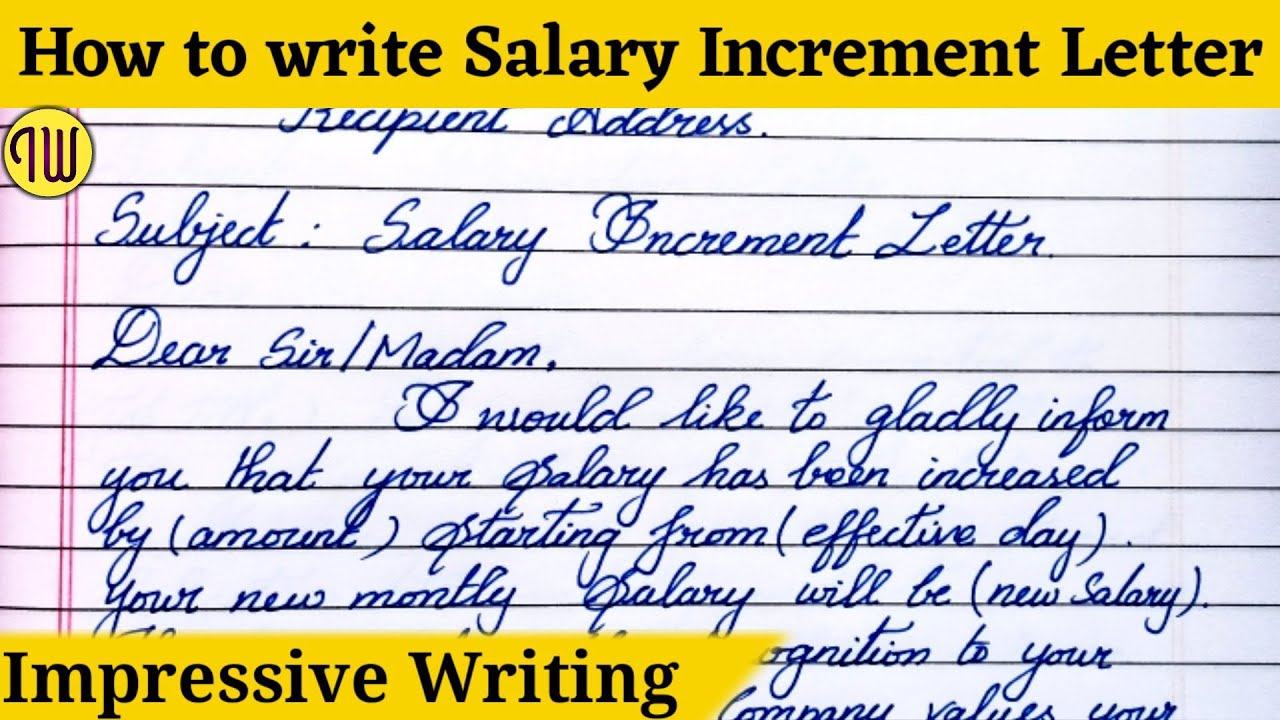 How to write Salary Increment Letter
IW
Recipient Address.
Subject : Salary Increment Letter.
Dear Sir/Madam,
I would like to gladly inform
you that your Salary has been increased
by (amount) Starting from (effective day).
Your new montly Salary will be (new Salary).
to your
Impressive Writing
Company values your